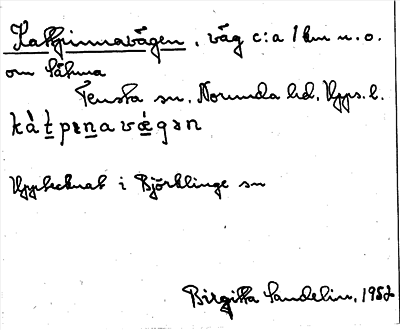 Kattpinnavägen, väg c:a 1 km n.o.
om Såhma
Tensta sn, Norunda hd, Upps. l.
kàt̲pən̲avǽ̲gən
Upptecknat i Björklinge sn
Birgitta Sandelin, 1952